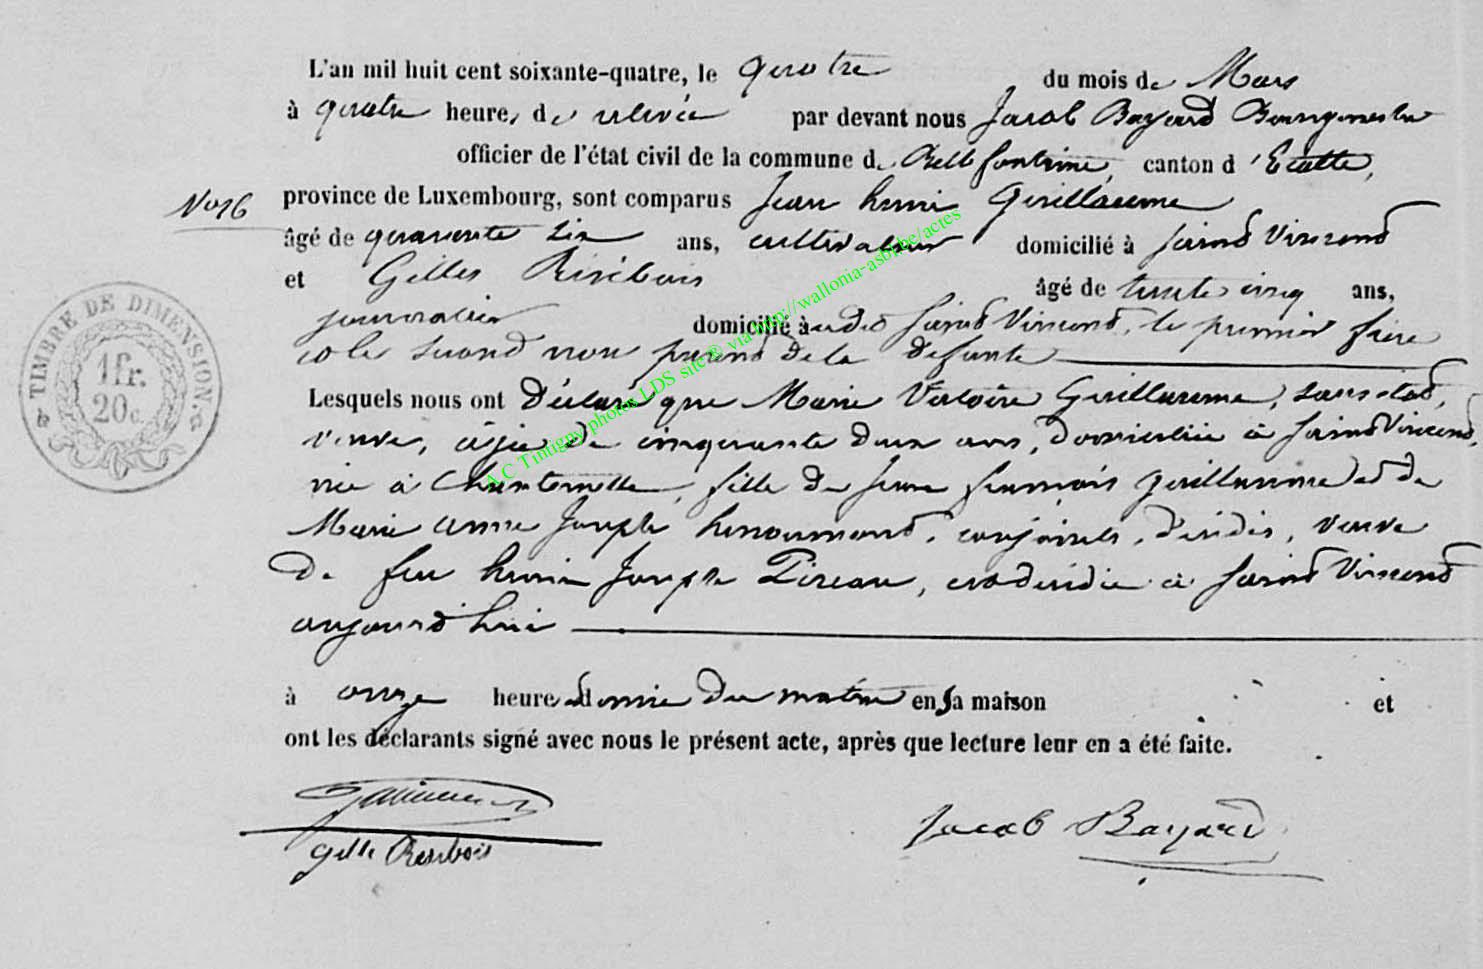 L'an mil huit cent soixante-quatre, le quatre du mois de Mars
à quatre heures de relevée par devant nous Jacob Bayard Bourgmestre
officier de l'état civil de la commune de Bellefontaine, canton d'Etalle,
N° 16
province de Luxembourg, sont comparus Jean henri Guillaume
âgé de quarante six ans, cultivateur domicilié à Saint Vincent
et Gilles Résibois âgé de trente cinq ans,
journalier domicilié audit Saint Vincent, le premier frère
et le second non parent de la défunte
Lesquels nous ont Déclaré que Marie Victoire Guillaume, sans état,
veuve, âgée de cinquante deux ans, domiciliée à Saint Vincent
née à Chantemelle, fille de feu françois Guillaume et de
Marie anne Joseph henoumont, conjoints, décédés, veuve
de feu henri Joseph Pireau, est décédée à Saint Vincent
aujourd'hui
à onze heures et demie du matin en sa maison et
ont les déclarants signé avec nous le présent acte, après que lecture leur en a été faite.
Gelle Resibois
Jacob Bayard
TIMBRE DE DIMENSION.
1 fr.
20 c.
A C Tintigny photos LDS site® via http://wallonia-asbl.be/actes